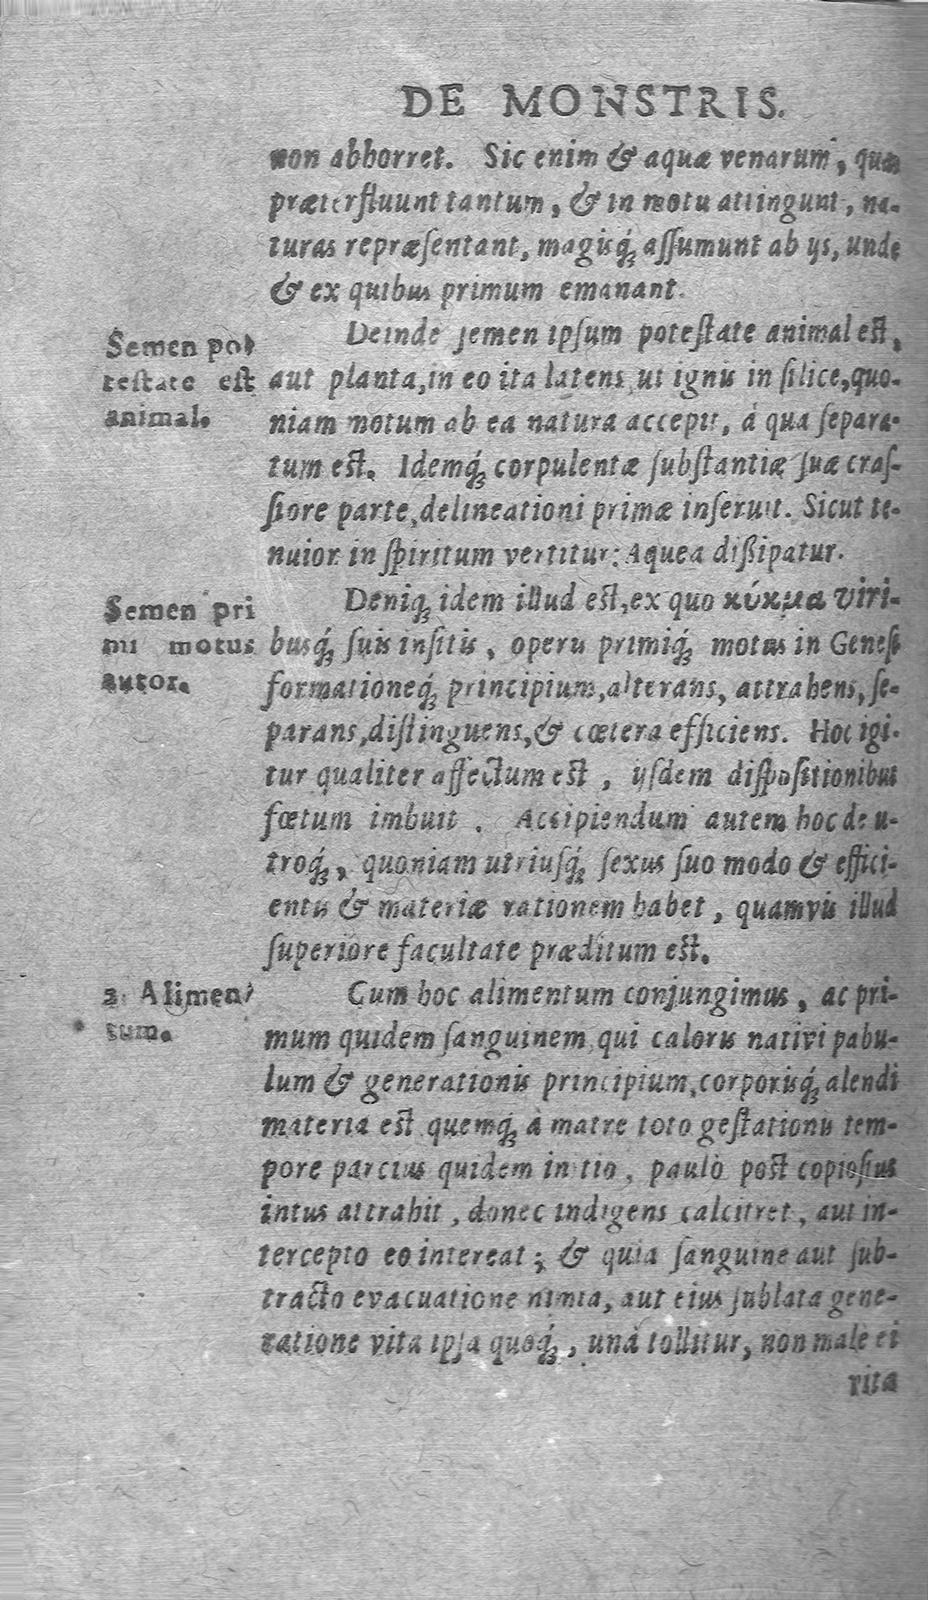 DE MONSTRIS.
non abhorret. Sic enim & aquæ venarum, quas
præterfluunt tantum, & in motu attingunt, na-
turas repræsentant, magisq́; assumunt ab ijs, unde
& ex quibus primum emanant.
Semen po-
testate est
animal.
Deinde semen ipsum potestate animal est,
aut planta, in eo ita latens ut ignis in silice, quo-
niam motum ab ea natura accepit, á qua separa-
tum est. Idemq́; corpulentæ substantiæ suæ cras-
siore parte, delineationi primæ inseruit. Sicut te-
nuior in spiritum vertitur: Aquea dißipatur.
Semen pri
mi motus
autor.
Deniq; idem illud est, ex quo κύημα viri-
busq́; suis insitis, operis primiq́; motus in Genesi
formationeq́; principium, alterans, attrahens, se-
parans, distinguens, & cœtera efficiens. Hoc igi-
tur qualiter affectum est, ijsdem dispositionibus
fœtum imbuit. Accipiendum autem hoc de u-
troq́;, quoniam utriusq́; sexus suo modo & effici-
entis & materiæ rationem habet, quamvis illud
superiore facultate præditum est.
2. Alimen-
tum.
Cum hoc alimentum conjungimus, ac pri-
mum quidem sanguinem, qui caloris nativi pabu-
lum & generationis principium, corporisq́; alendi
materia est quemq́; à matre toto gestationis tem-
pore parcius quidem initio, paulò post copiosius
intus attrahit, donec indigens calcitret, aut in-
tercepto eo intereat; & quia sanguine aut sub-
tracto evacuatione nimia, aut eius sublata gene-
ratione vita ipsa quoq́;, unà tollitur, non malè ei
rita